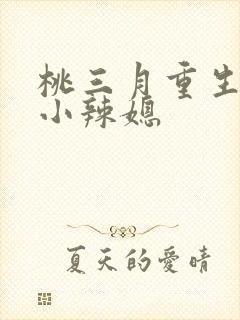 桃三月重生
小辣媳
夏天的愛晴